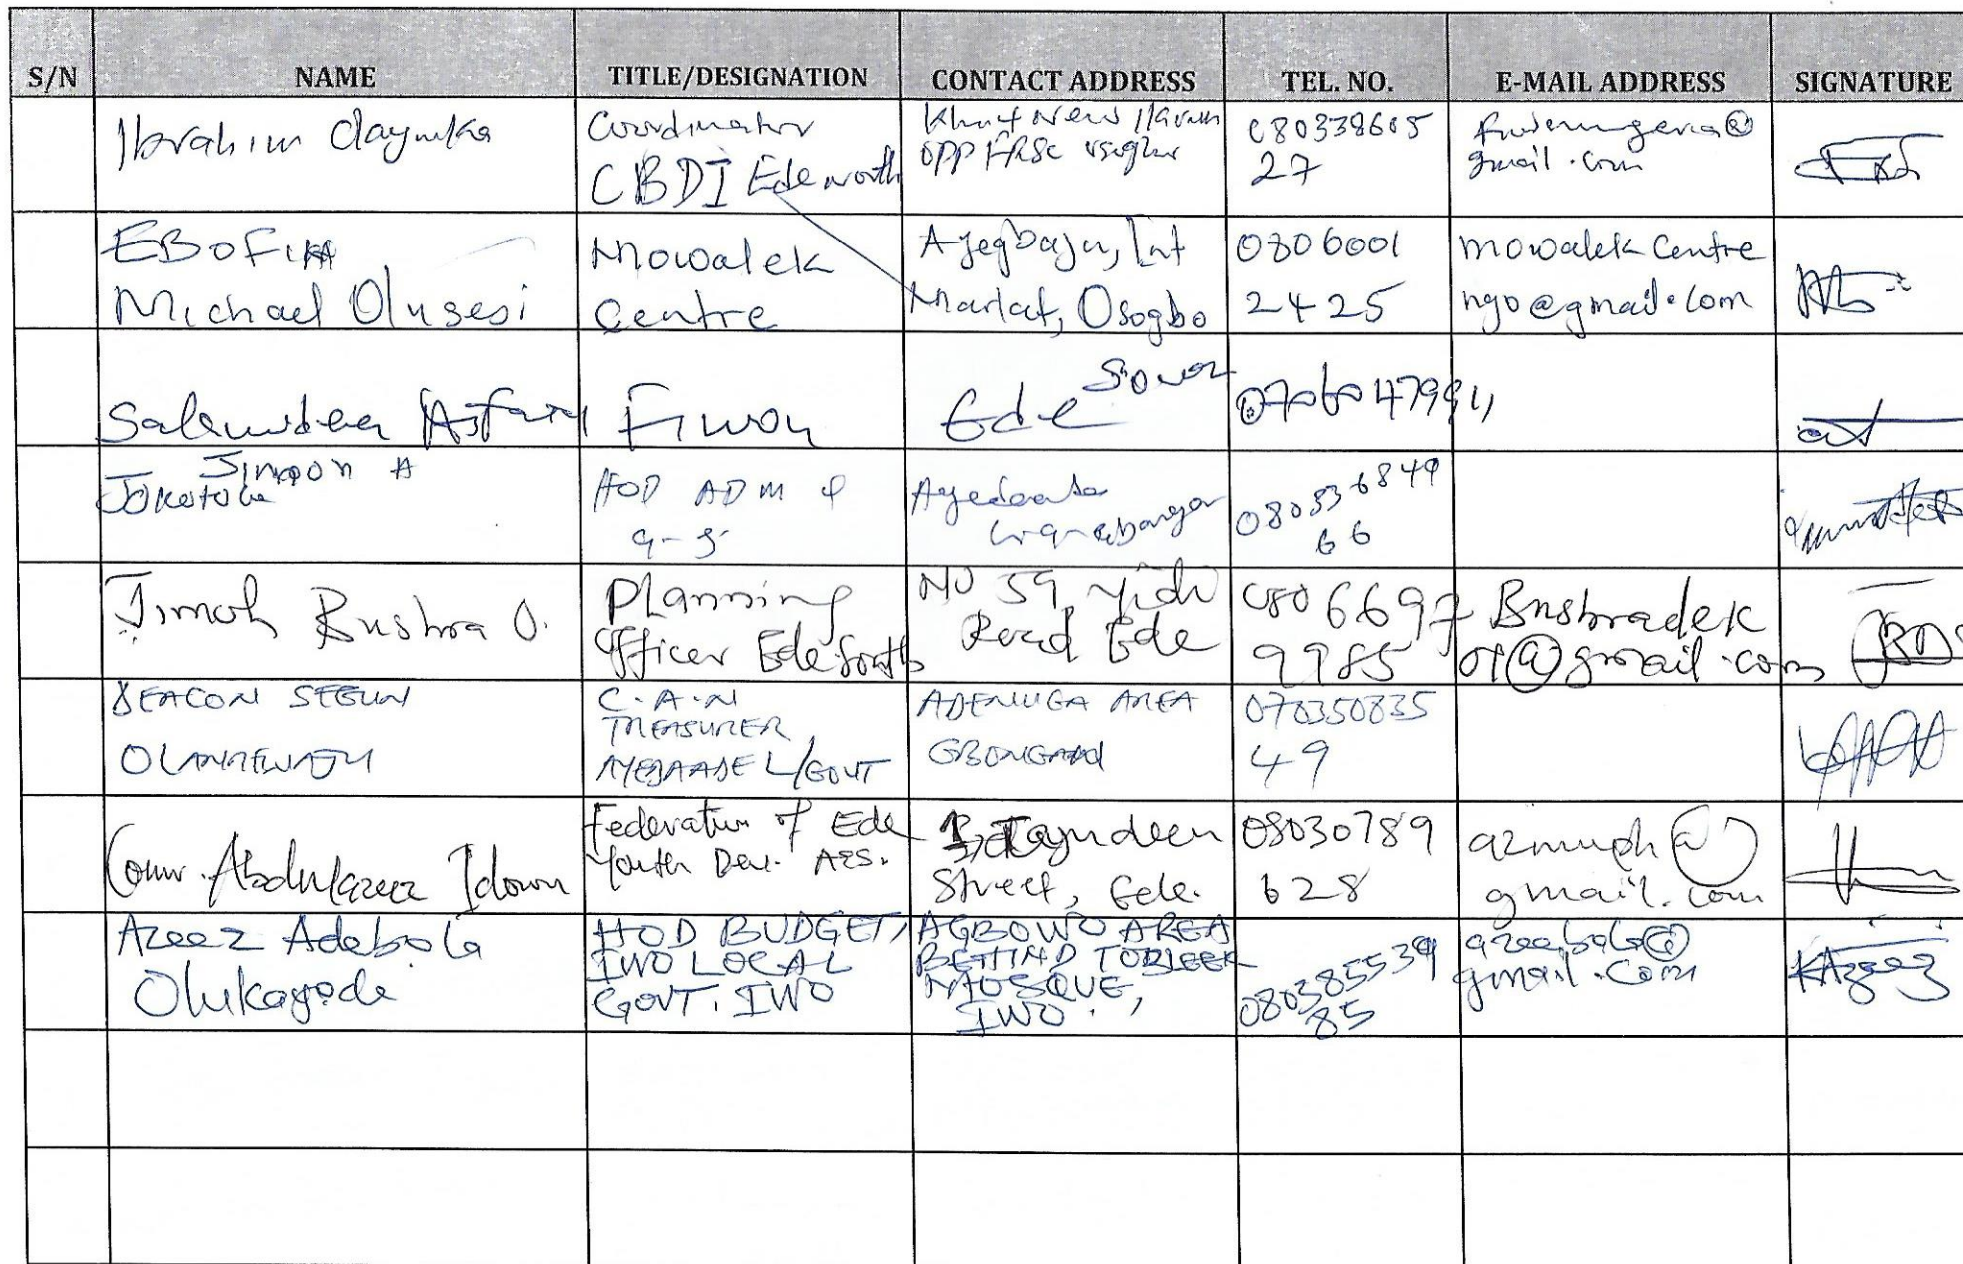 S/N NAME TITLE/DESIGNATION CONTACT ADDRESS TEL. NO. E-MAIL ADDRESS SIGNATURE
Ibrahim Olayinka
Coordinator
CBDI Ede north
opp FRSC
27
gmail.com
EBOFIN
Michael Olusesi
Mowalek
Centre
Ayegbaju, Int
Market, Osogbo
0806001
2425
mowalek Centre
ngo@gmail.com
Ede
Simeon A
HOD ADM &
080536849
66
Jimoh Bushra O.
Planning
Officer Ede South
NO 59 Yidi
Road Ede
0806697
9985
Bushradek
01@gmail.com
DEACON SEGUN
OLANREWAJU
C.A.N
TREASURER
AYEDAADE L/GOVT
ADENUGA AREA
GBONGAN
070350835
49
Comr. Abdulazeez Idowu
Federation of Ede
Youth Dev. Ass.
Tajudeen
Street, Ede.
08030789
628
azmuph@
gmail.com
Azeez Adebola
Olukayode
HOD BUDGET,
IWO LOCAL
GOVT. IWO
AGBOWO AREA
BEHIND
MOSQUE,
IWO.
080385539
85
gmail.com
KAzeez